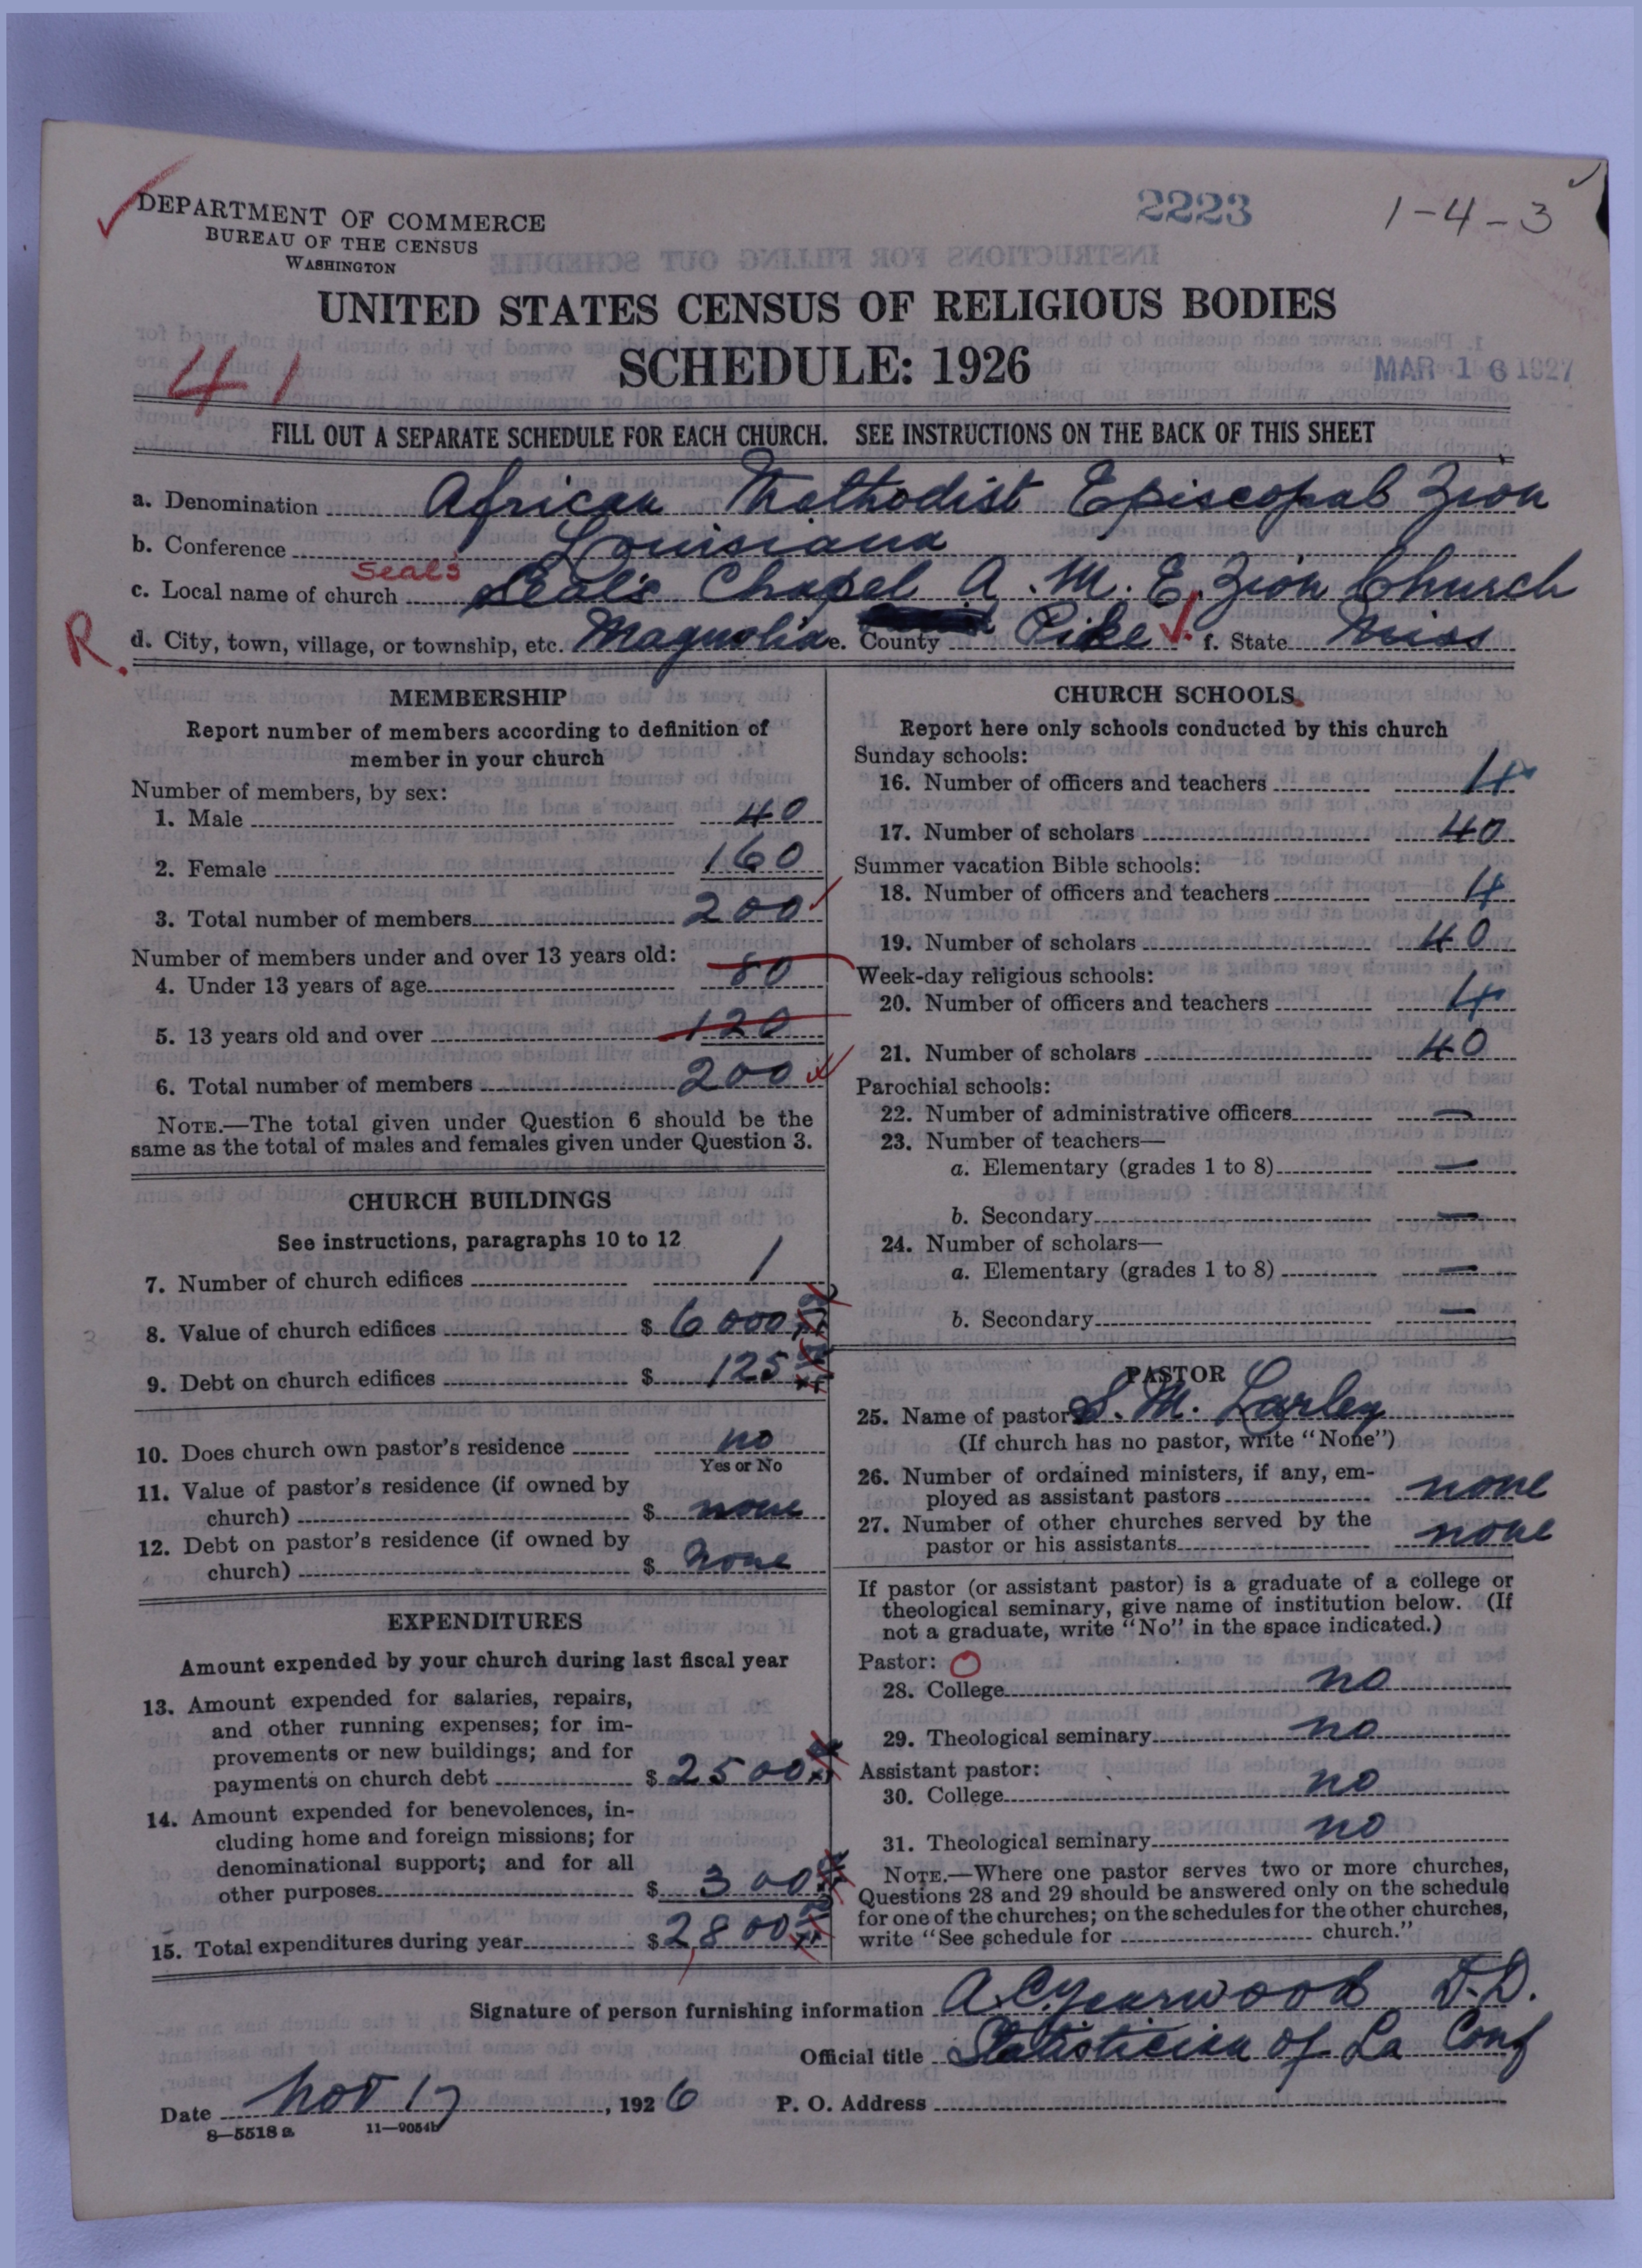 2223
1-4-3
DEPARTMENT OF COMMERCE
BUREAU OF THE CENSUS
WASHINGTON
UNITED STATES CENSUS OF RELIGIOUS BODIES
SCHEDULE: 1926
41
MAR 16 1927
FILL OUT A SEPARATE SCHEDULE FOR EACH CHURCH. SEE INSTRUCTIONS ON THE BACK OF THIS SHEET
a. Denomination African Methodist Episcopal Zion
b. Conference Louisiana
Seals
c. Local name of church Seals Chapel A. M. E. Zion Church
R. d. City, town, village, or township, etc. Magnolia e. County Pike f. State Miss
MEMBERSHIP
Report number of members according to definition of
member in your church
Number of members, by sex:
1. Male 40
2. Female 160
3. Total number of members 200
Number of members under and over 13 years old:
4. Under 13 years of age 80
5. 13 years old and over 120
6. Total number of members 200
NOTE.—The total given under Question 6 should be the
same as the total of males and females given under Question 3.
CHURCH BUILDINGS
See instructions, paragraphs 10 to 12
7. Number of church edifices 1
8. Value of church edifices $ 6000
9. Debt on church edifices $ 125
10. Does church own pastor's residence no
Yes or No
11. Value of pastor's residence (if owned by
church) $ none
12. Debt on pastor's residence (if owned by
church) $ none
EXPENDITURES
Amount expended by your church during last fiscal year
13. Amount expended for salaries, repairs,
and other running expenses; for im-
provements or new buildings; and for
payments on church debt $ 2500
14. Amount expended for benevolences, in-
cluding home and foreign missions; for
denominational support; and for all
other purposes $ 300
15. Total expenditures during year $ 2,800
CHURCH SCHOOLS
Report here only schools conducted by this church
Sunday schools:
16. Number of officers and teachers 4
17. Number of scholars 40
Summer vacation Bible schools:
18. Number of officers and teachers 4
19. Number of scholars 40
Week-day religious schools:
20. Number of officers and teachers 4
21. Number of scholars 40
Parochial schools:
22. Number of administrative officers —
23. Number of teachers—
a. Elementary (grades 1 to 8) —
b. Secondary —
24. Number of scholars—
a. Elementary (grades 1 to 8) —
b. Secondary —
PASTOR
25. Name of pastor S. M. Larley
(If church has no pastor, write "None")
26. Number of ordained ministers, if any, em-
ployed as assistant pastors none
27. Number of other churches served by the
pastor or his assistants none
If pastor (or assistant pastor) is a graduate of a college or
theological seminary, give name of institution below. (If
not a graduate, write "No" in the space indicated.)
Pastor: O
28. College no
29. Theological seminary no
Assistant pastor:
30. College no
31. Theological seminary no
NOTE.—Where one pastor serves two or more churches,
Questions 28 and 29 should be answered only on the schedule
for one of the churches; on the schedules for the other churches,
write "See schedule for church."
Signature of person furnishing information A. C. Yearwood D.D.
Official title Statistician of La Conf
Date Nov 17, 1926 P. O. Address
8—5518 a 11—9054b